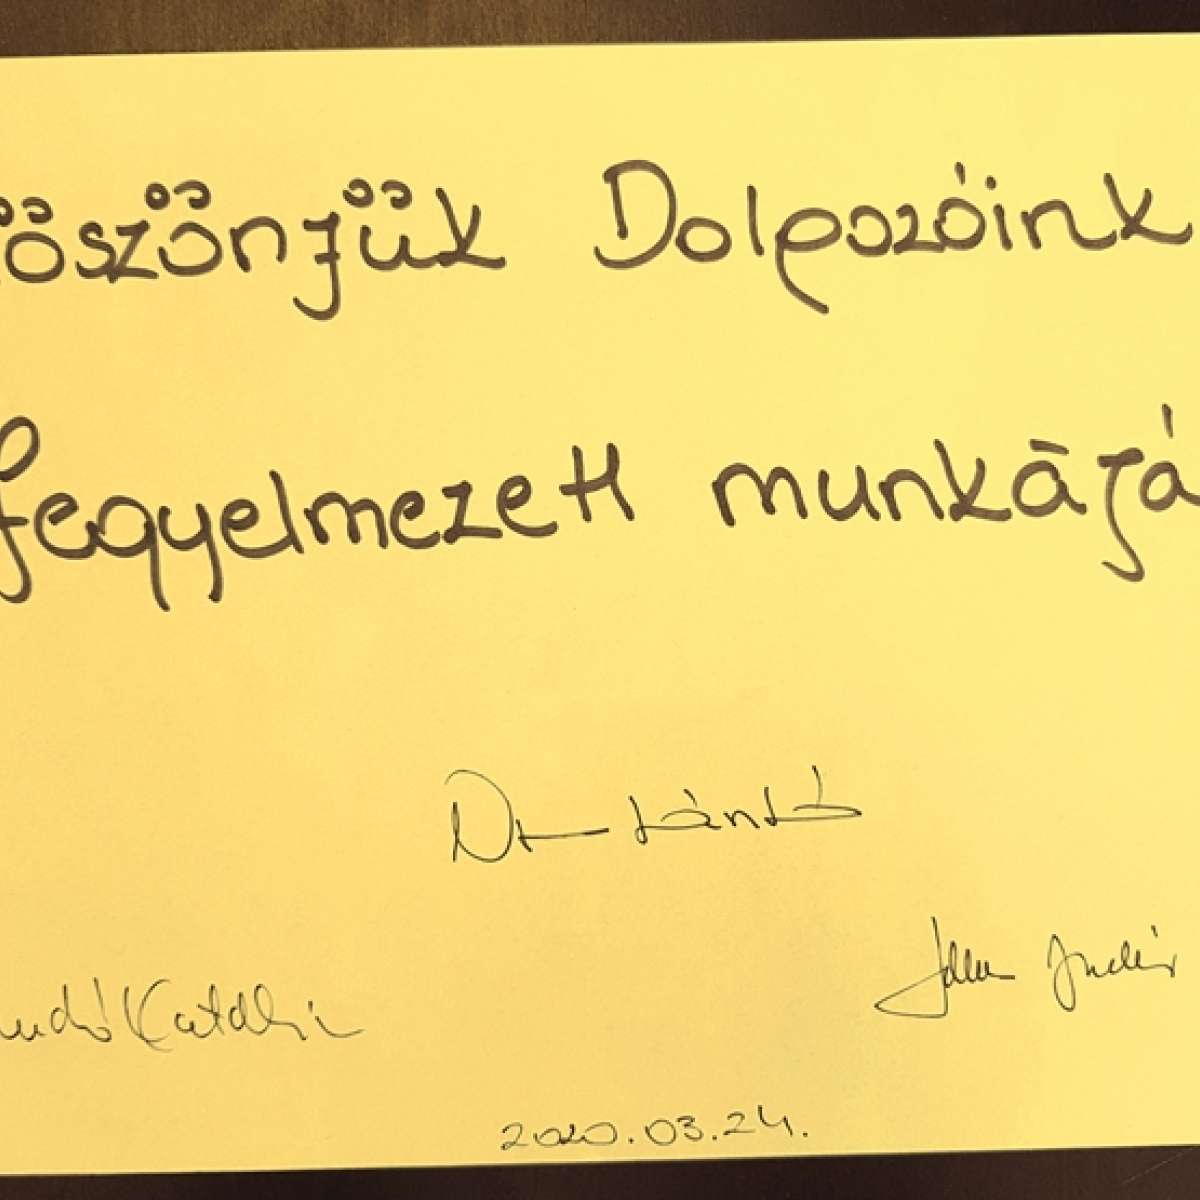 öszönjük Dolgozóink
fegyelmezett munkájá
Katalin
2020.03.24.